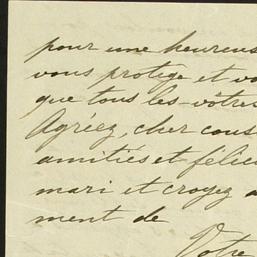 pour une heureus
vous protège et vo
que tous les vôtres
Agréez, cher cous
amitiés et félici
mari et croyez a
ment de
Votre